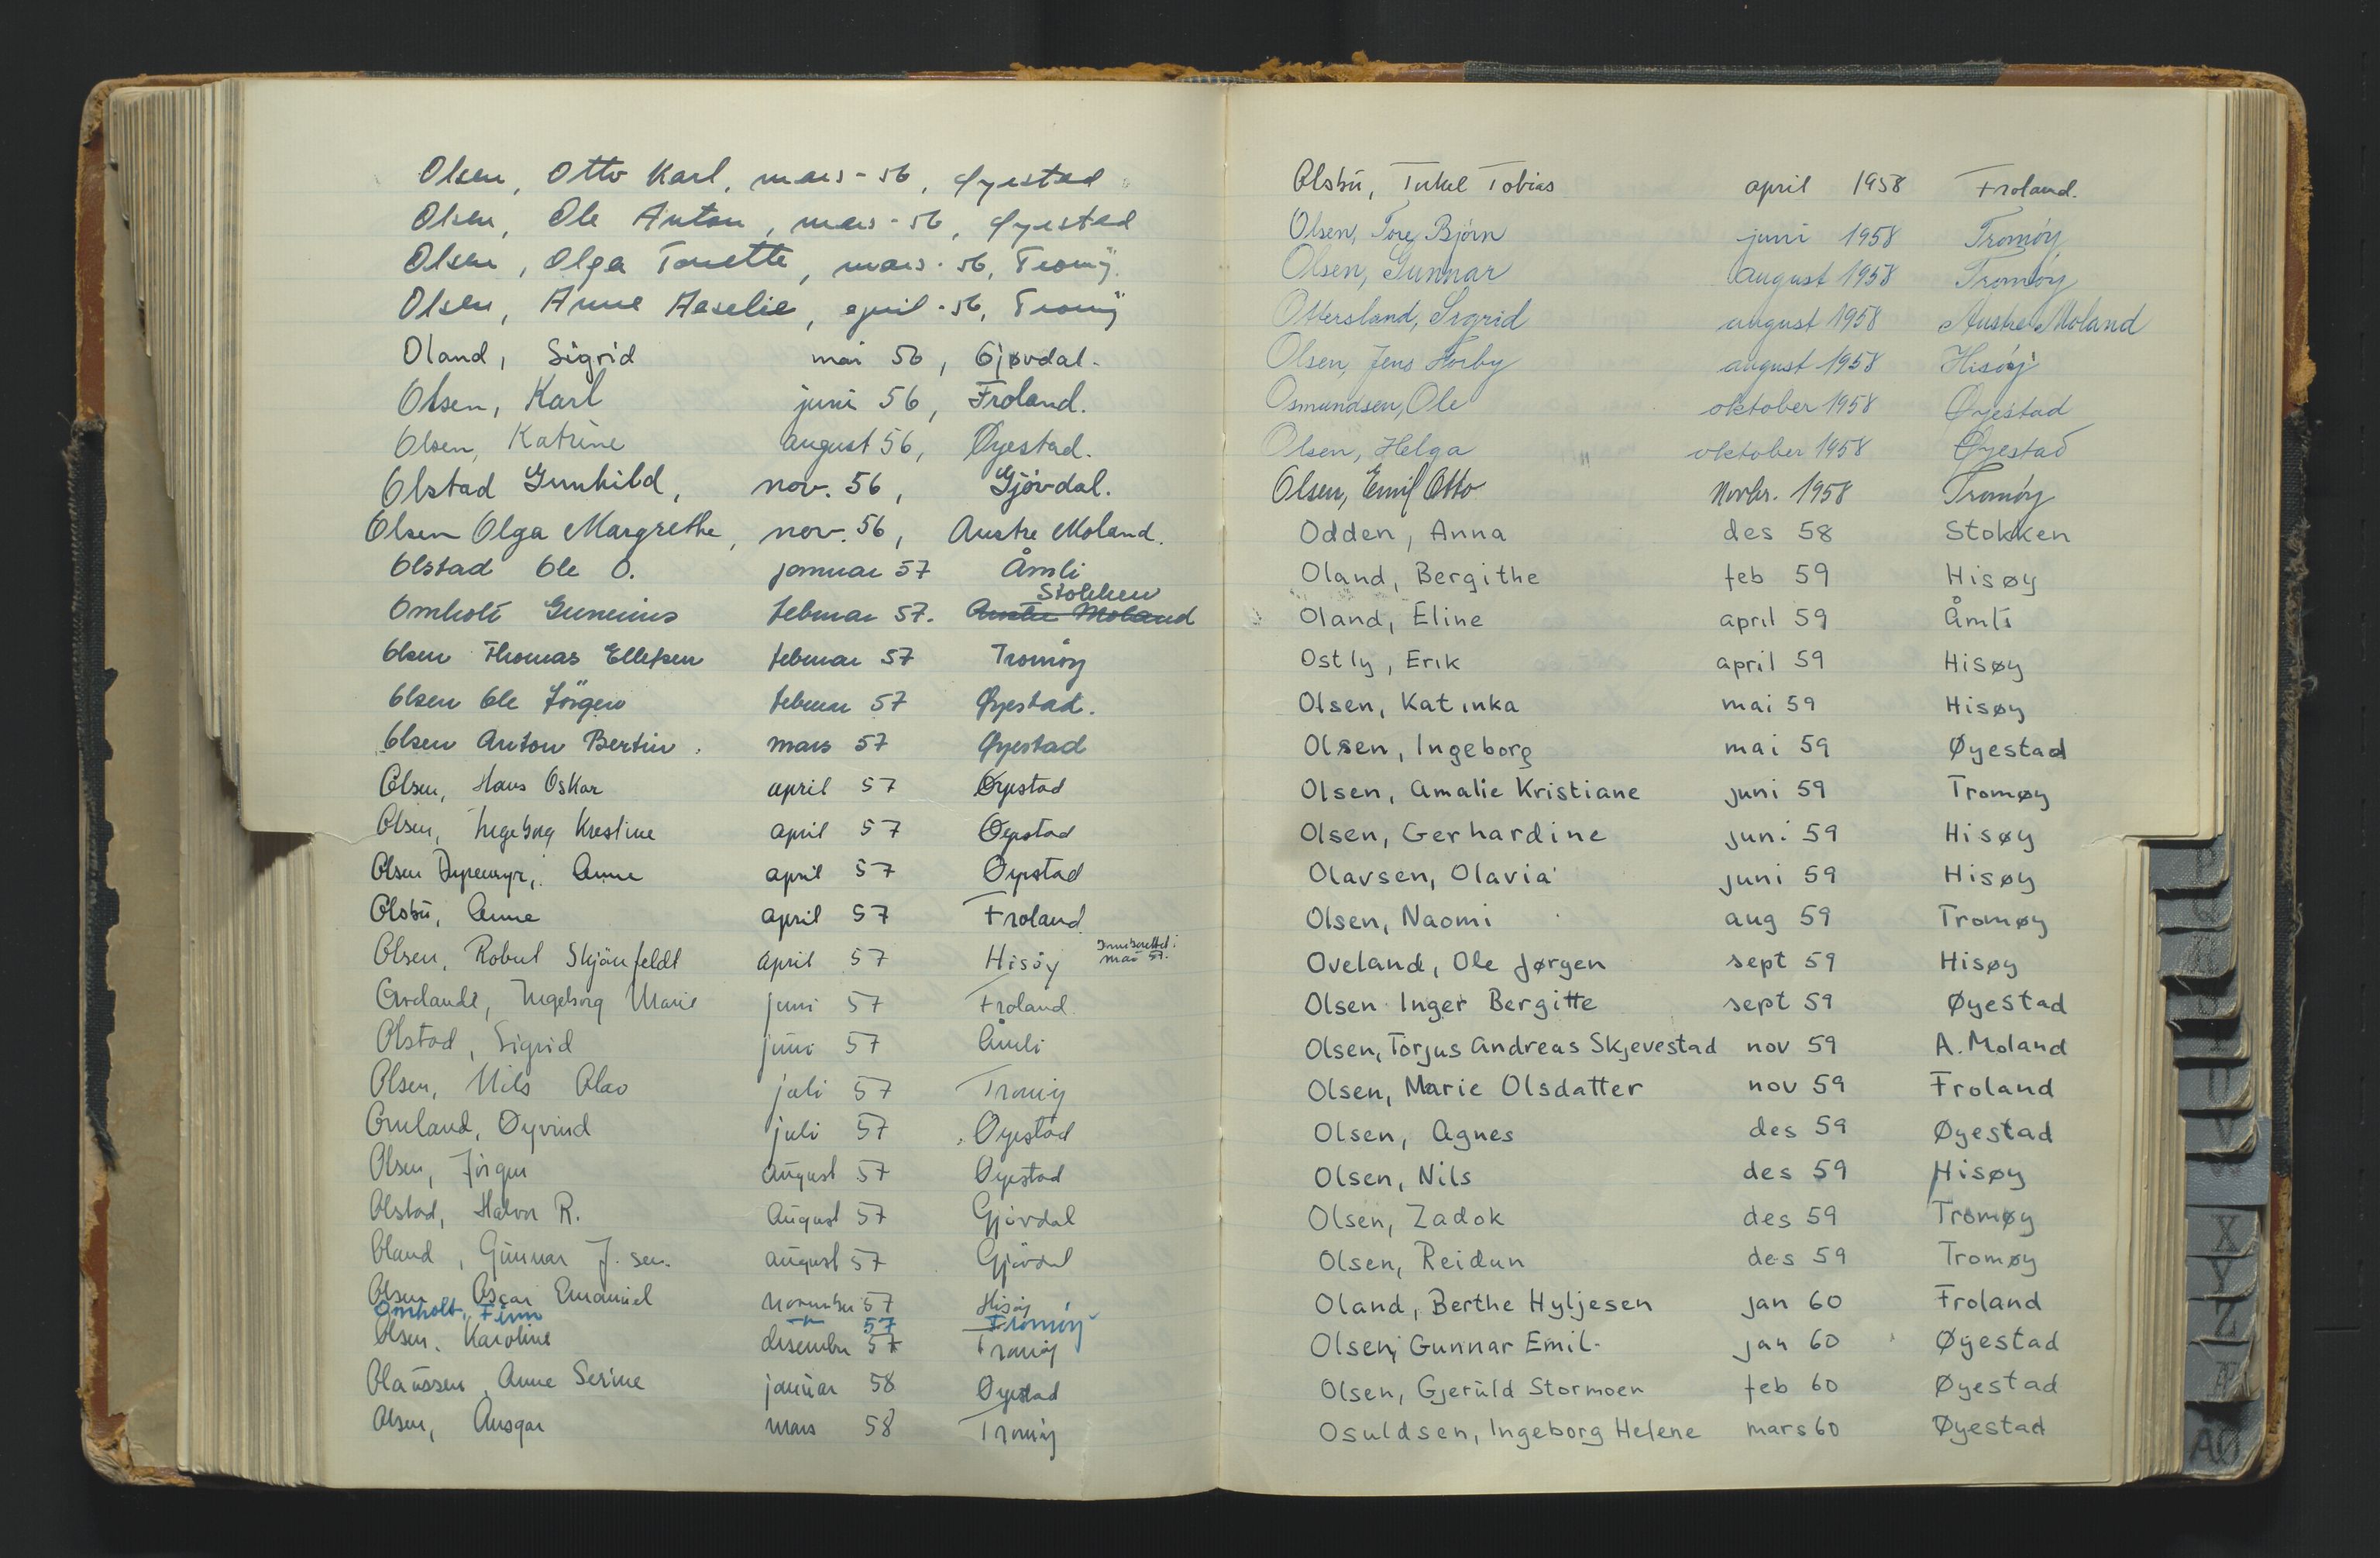 Olsen, Otto Karl, mars - 56, Øyestad
Olsen, Ole Anton, mars - 56, Øyestad
Olsen, Olga Tomette, mars - 56, Tromöy.
Olsen, Anne Aaselie, april - 56, Tromöy
Oland, Sigrid mai 56, Gjøvdal.
Olsen, Karl juni 56, Froland.
Olsen, Katrine august 56, Øyestad.
Olstad Gunhild, nov. 56, Gjövdal.
Olsen Olga Margrethe, nov. 56, Austre Moland.
Olstad Ole O. januar 57 Åmli
Stokken
Omholt Gunerius februar 57. Austre Moland
Olsen Thomas Ellefsen februar 57 Tromöy
Olsen Ole Jörgen februar 57 Øyestad.
Olsen Anton Bertin. mars 57 Øyestad
Olsen, Hans Oskar april 57 Øyestad
Olsen, Ingeborg Krestine april 57 Øyestad
Olsen Dyremyr, Anne april 57 Øyestad
Olsbu, Anne april 57 Froland.
Olsen, Robert Skjönfeldt april 57 Hisöy Innberettet i mai 57.
Ingeborg Marie juni 57 Froland.
Olstad, Sigrid juni 57 Åmli
Olsen, Nils Olav juli 57 Tromöy
Omland, Øyvind juli 57 Øyestad
Olsen, Jörgen august 57 Øyestad
Olstad, Halvor R. August 57 Gjövdal
Oland, Gunnar J. sen. august 57 Gjövdal
Olsen Oscar Emanuel november 57 Hisöy
Omholt, Finn —"— 57 Tromöy
Olsen, Karoline desember 57 Tromöy
Olaussen, Anne Serine januar 58 Øyestad
Olsen, Ansgar mars 58 Tromöy
Olsbu, Terkel Tobias april 1958 Froland.
Olsen, Tore Björn juni 1958 Tromöy
Olsen, Gunnar august 1958 Tromöy
Ottersland, Sigrid august 1958 Austre Moland
Olsen, Jens Forby august 1958 Hisöy
Osmundsen, Ole oktober 1958 Øyestad
Olsen, Helga oktober 1958 Øyestad
Olsen, Emil Otto Novbr. 1958 Tromöy
Odden, Anna des 58 Stokken
Oland, Bergithe feb 59 Hisøy
Oland, Eline april 59 Åmli
Ostly, Erik april 59 Hisøy
Olsen, Katinka mai 59 Hisøy
Olsen, Ingeborg mai 59 Øyestad
Olsen, Amalie Kristiane juni 59 Tromøy
Olsen, Gerhardine juni 59 Hisøy
Olavsen, Olavia juni 59 Hisøy
Olsen, Naomi aug 59 Tromøy
Oveland, Ole Jørgen sept 59 Hisøy
Olsen Inger Bergitte sept 59 Øyestad
Olsen, Torjus Andreas Skjevestad nov 59 A. Moland
Olsen, Marie Olsdatter nov 59 Froland
Olsen, Agnes des 59 Øyestad
Olsen, Nils des 59 Hisøy
Olsen, Zadok des 59 Tromøy
Olsen, Reidun des 59 Tromøy
Oland, Berthe Hyljesen jan 60 Froland
Olsen, Gunnar Emil. jan 60 Øyestad
Olsen, Gjeruld Stormoen feb 60 Øyestad
Osuldsen, Ingeborg Helene mars 60 Øyestad
P
Q
R
S
T
U
V
X
Y
Z
Æ
AØ